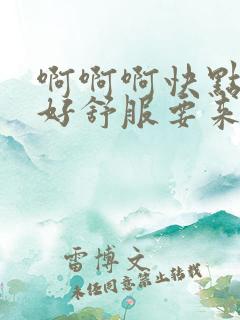 啊啊啊快點
好舒服要来
雷博文
未经同意禁止转载